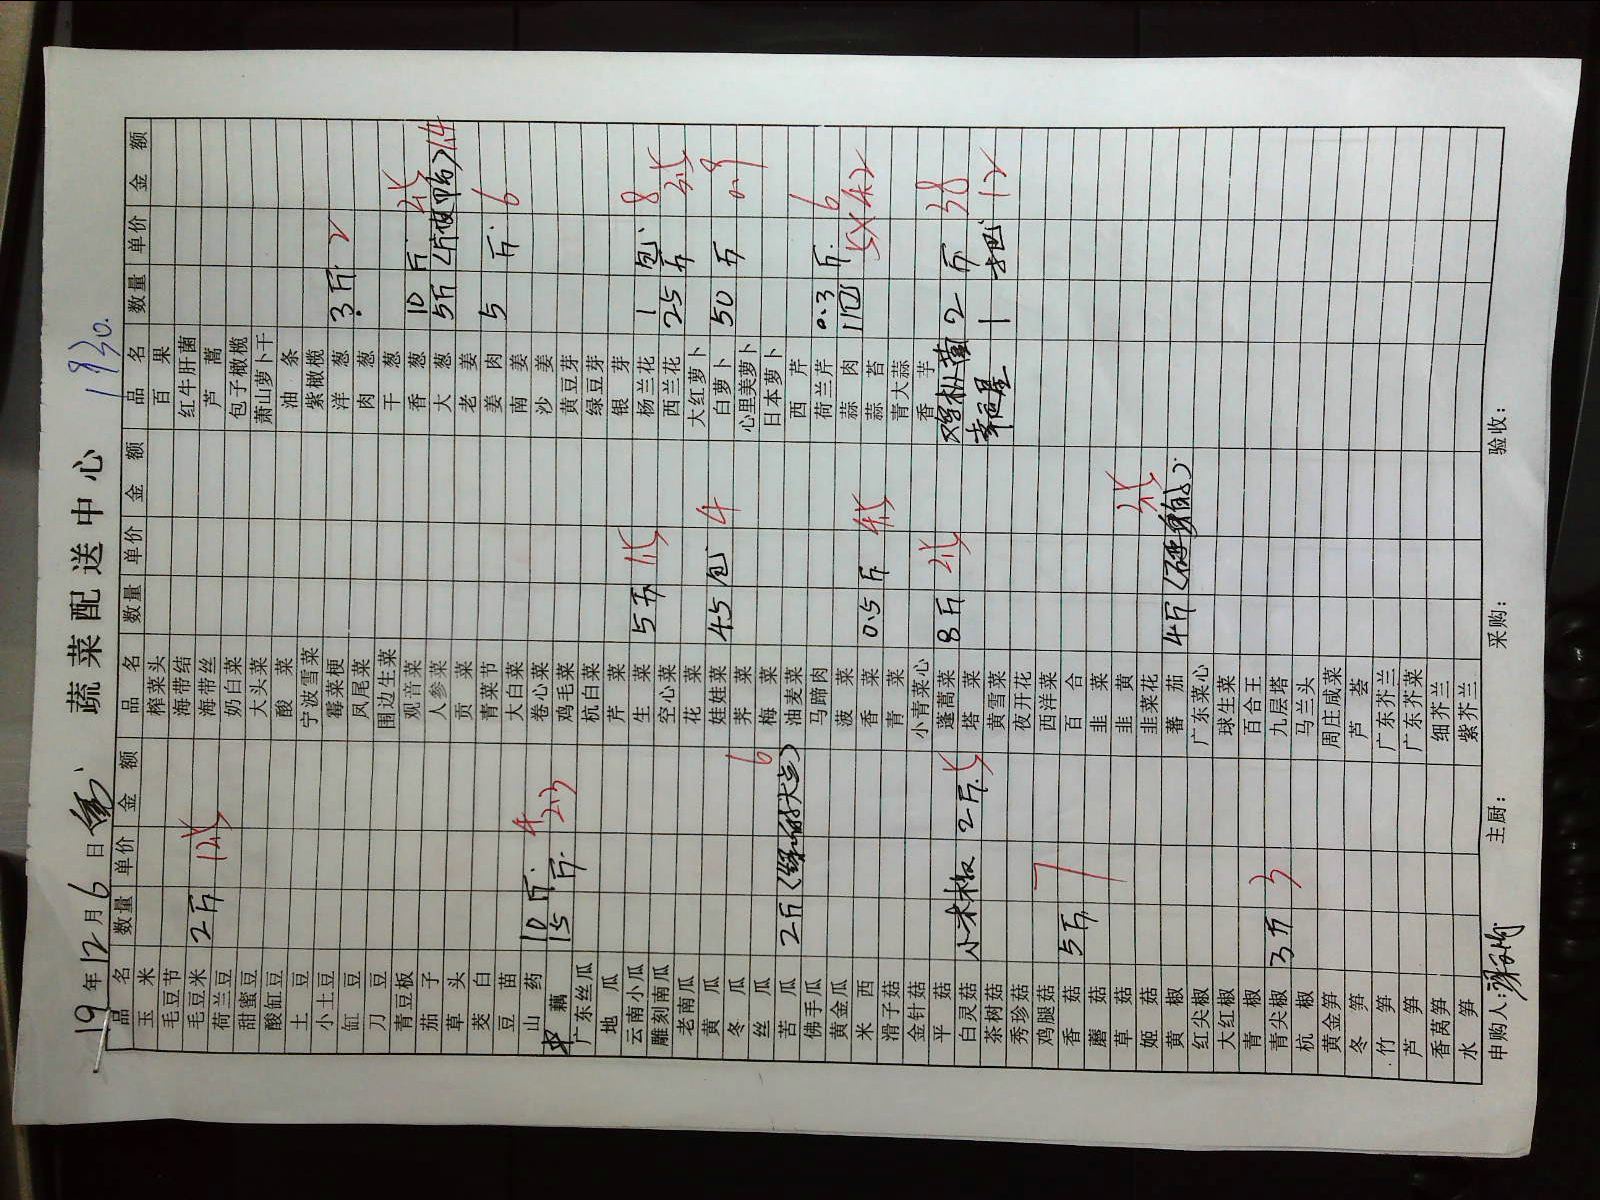 蔬菜配送中心
1930.
19年12月6日
品名 数量 单价 金额 品名 数量 单价 金额 品名 数量 单价 金额
玉米 榨菜头 百果
毛豆节 海带结 红牛肝菌
毛豆米 2斤 海带丝 芦蒿
荷兰豆 奶白菜 包子橄榄
甜蜜豆 大头菜 萧山萝卜干
酸缸豆 酸菜 油条
土豆 宁波雪菜 紫橄榄
小土豆 霉菜梗 洋葱 3斤 2
缸豆 凤尾菜 肉葱
刀豆 围边生菜 干葱
青豆板 观音菜 香葱 10斤
茄子 人参菜 大葱 5斤 14
草头 贡菜 老姜
茭白 青菜节 姜肉 5斤 6
豆苗 大白菜 南姜
山药 10斤 4 卷心菜 沙姜
中藕 15斤 23 鸡毛菜 黄豆芽
广东丝瓜 杭白菜 绿豆芽
地瓜 芹菜 银芽
云南小瓜 生菜 5斤 杨兰花 1包 8
雕刻南瓜 空心菜 西兰花 25斤
老南瓜 花菜 大红萝卜
黄瓜 娃娃菜 45包 4 白萝卜 50斤 0.9
冬瓜 荠菜 心里美萝卜
丝瓜 6 梅菜 日本萝卜
苦瓜 2斤 油麦菜 西芹
佛手瓜 马蹄肉 荷兰芹 0.3斤 6
黄金瓜 菠菜 蒜肉
米西 香菜 0.5斤 蒜苔
滑子菇 青菜 青大蒜
金针菇 小青菜心 香芋
平菇 蓬蒿菜 8斤 鸡枞菌 2斤 38
白灵菇 小木板 2斤 塔菜 幸运星 1把 12
茶树菇 黄雪菜
秀珍菇 夜开花
鸡腿菇 7 西洋菜
香菇 5斤 百合
蘑菇 韭菜
草菇 韭黄
姬菇 韭菜花
黄椒 蕃茄 4斤
红尖椒 广东菜心
大红椒 球生菜
青椒 3 百合王
青尖椒 3斤 九层塔
杭椒 马兰头
黄金笋 周庄咸菜
冬笋 芦荟
竹笋 广东芥兰
芦笋 广东芥菜
香莴笋 细芥兰
水笋 紫芥兰
申购人: 主厨: 采购: 验收: